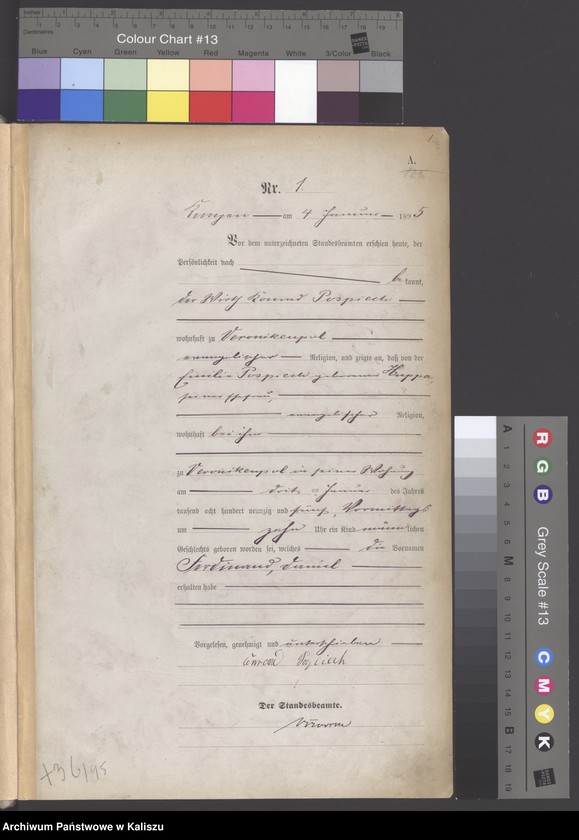 Colour Chart #13
Blue Cyan Green Yellow Red Magenta White 3/Color Black
A.
Nr. 1.
Kempen am 4 Januar 1895
Vor dem unterzeichneten Standesbeamten erschien heute, der
Persönlichkeit nach
bekannt,
der Wirth Konrad Pospiech
wohnhaft zu Veronikenpol
evangelischer Religion, und zeigte an, daß von der
Emilie Pospiech geborenen Huppa,
seiner Ehefrau,
evangelischer Religion,
wohnhaft bei ihm
zu Veronikenpol in seiner Wohnung
am dritten Januar des Jahres
tausend acht hundert neunzig und fünf, Vormittags
um zehn Uhr ein Kind männlichen
Geschlechts geboren worden sei, welches die Vornamen
Ferdinand, Daniel
erhalten habe
Vorgelesen, genehmigt und unterschrieben
Conrad Pospiech
Der Standesbeamte.
Grey Scale #13
R G B
C M Y K
A 1 2 3 4 5 6 M 8 9 10 11 12 13 14 15 B 17 18 19
Archiwum Państwowe w Kaliszu